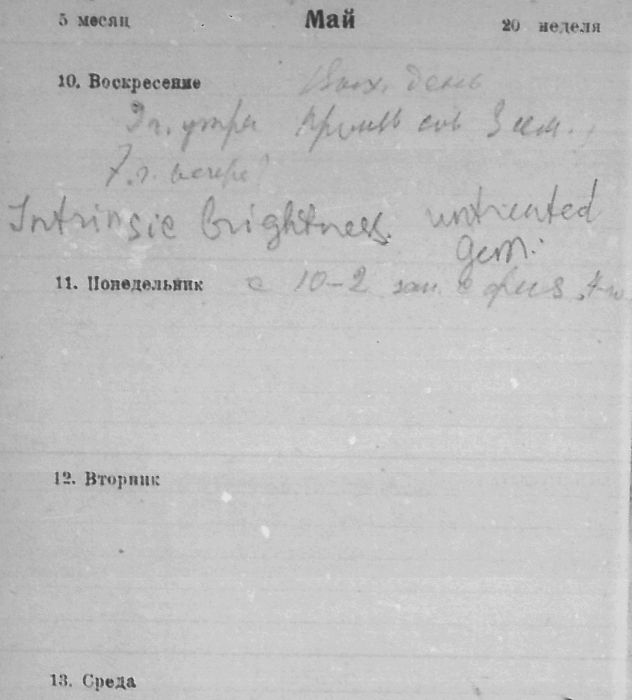 5 месяц Май 20 неделя
10. Воскресение Вых. день
7 г. утра
7 г. вечера
Intrinsic brightness. untreated
gem.
11. Понедельник с 10-2 зан. с физ.
12. Вторник
13. Среда